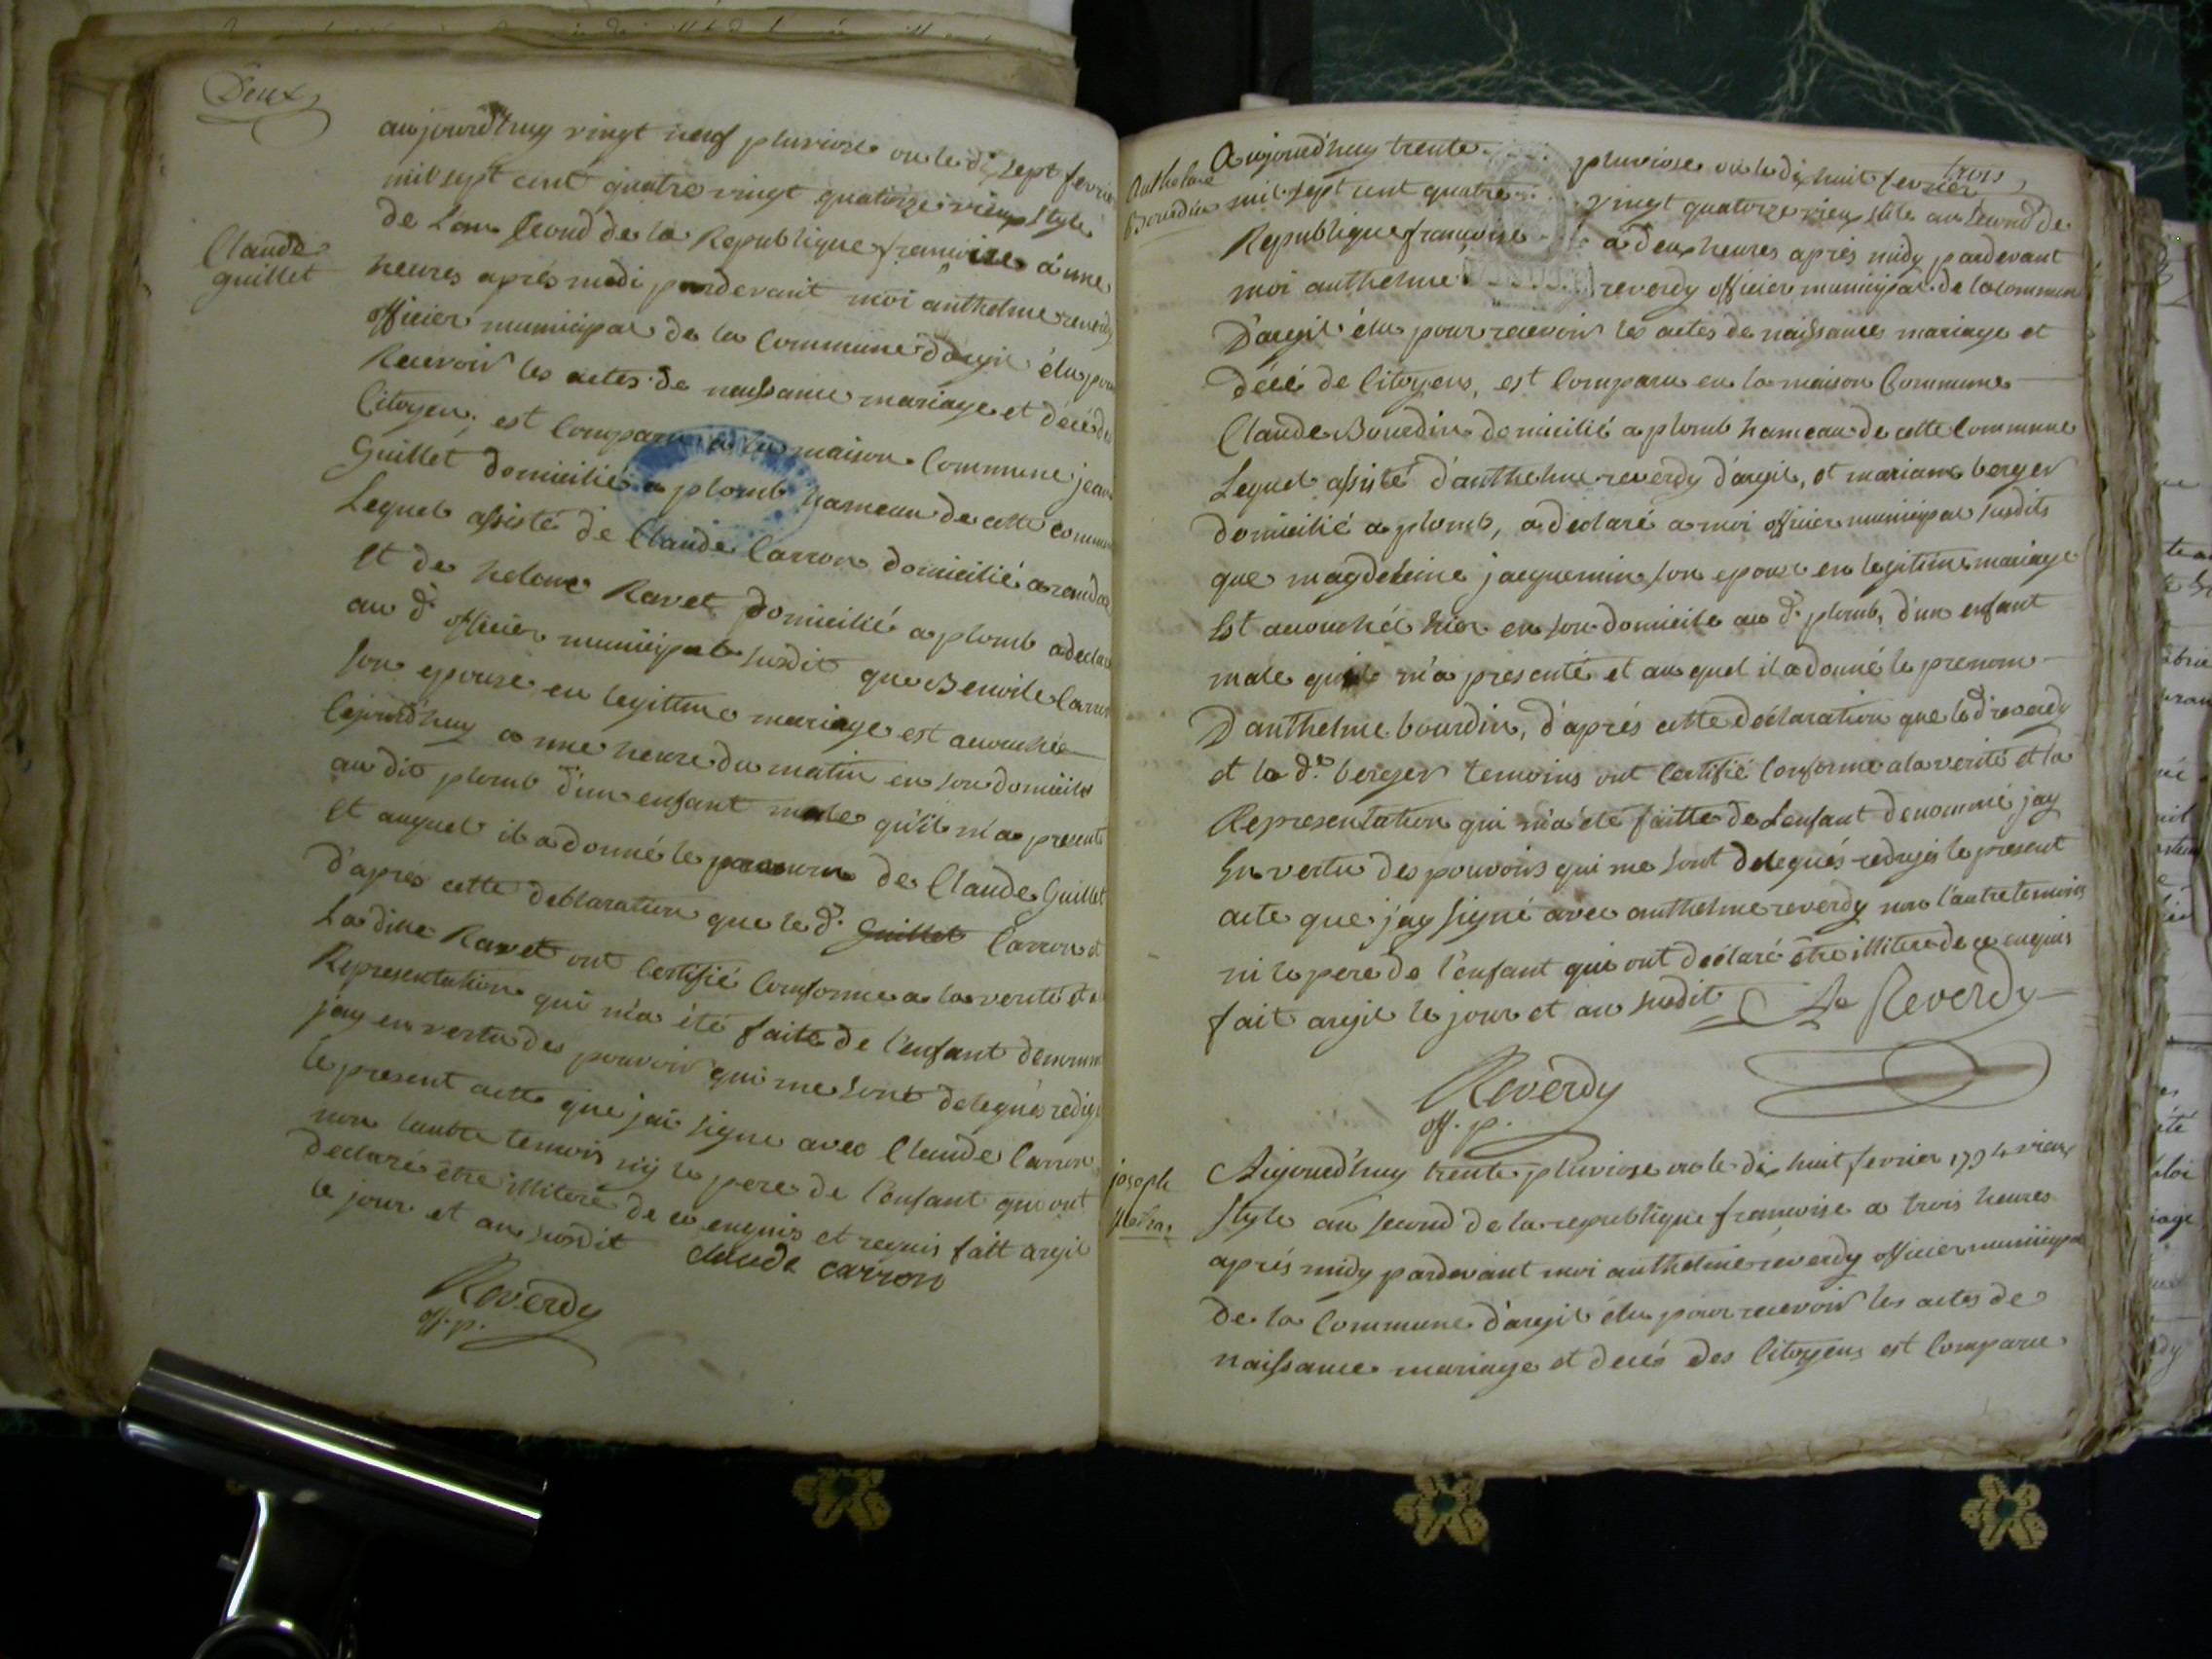 Deux
aujourd'huy vingt neuf pluviose ou le dix sept fevrier
mil sept cent quatre vingt quatorze vieux style
de Lan Second de la Republique francoise a une
Claude
guillet
heures aprés midi pardevant moi anthelme reverdy
officier municipal de la Commune d'argil élu pour
Recevoir les actes de naissance mariage et décé de
Citoyen, est Comparu a la maison Commune jean
Guillet domicilié a plomb hameau de cette commune
Lequel assisté de Claude Carron domicilié a
et de helene Ravet domicilié a plomb a declaré
au d. officier municipal susdit que Benoite Carron
son epouse en legitime mariage est accouchée
cejourd'huy a une heure du matin en son domicile
au dit plomb d'un enfant male qu'il m'a presenté
et auquel il a donné le prenom de Claude Guillet
d'aprés cette declaration que le d. Guillet Carron et
La dite Ravet ont Certifié Conforme a la verité et la
Representation qui m'a été faite de l'enfant denommé
jay en vertu des pouvoir qui me sont delegués redigé
le present acte que jai signé avec Claude Carron
non lautre temoin ny le pere de l'enfant qui ont
declaré être illiteré de ce enquis et requis fait argil
le jour et an susdit Claude carron
Reverdy
off. p.
trois
Anthelme
Bourdin
Aujourd'huy trente pluviose ou le dix huit fevrier
mil sept cent quatre vingt quatorze vieux stile an second de
Republique francoise a deux heures aprés midy pardevant
moi anthelme reverdy officier municipal de la commune
D'argil élu pour recevoir les actes de naissances mariage et
décé de Citoyens, est Comparu en la maison Commune
Claude Bourdin domicilié a plomb hameau de cette Commune
Lequel assisté d'anthelme reverdy d'argil, et mariane berger
domicilié a plomb, a declaré a moi officier municipal susdits
que magdeleine jacquemin son epouse en legitime mariage
Est accouchée hier en son domicile au d. plomb, d'un enfant
male qu'il m'a presenté et au quel il a donné le prenom
D'anthelme bourdin, d'aprés cette declaration que le d. reverdy
et la d.e berger temoins ont Certifié Conforme a la verité et la
Representation qui m'a été faitte de L'enfant denommé, jay
En vertu des pouvoirs qui me sont delegués redigés le present
acte que j'ay signé avec anthelme reverdy non l'autre temoins
ni le pere de l'enfant qui ont déclaré être illiteré de ce enquis
fait argil le jour et an susdit Reverdy
Reverdy
off. p.
joseph
Aujourd'huy trente pluviose ou le dix huit fevrier 1794 vieux
style an second de la republique francoise a trois heures
aprés midy pardevant moi anthelme reverdy officier municipal
de la Commune d'argil élu pour recevoir les actes de
naissance mariage et decés des Citoyens est Comparu